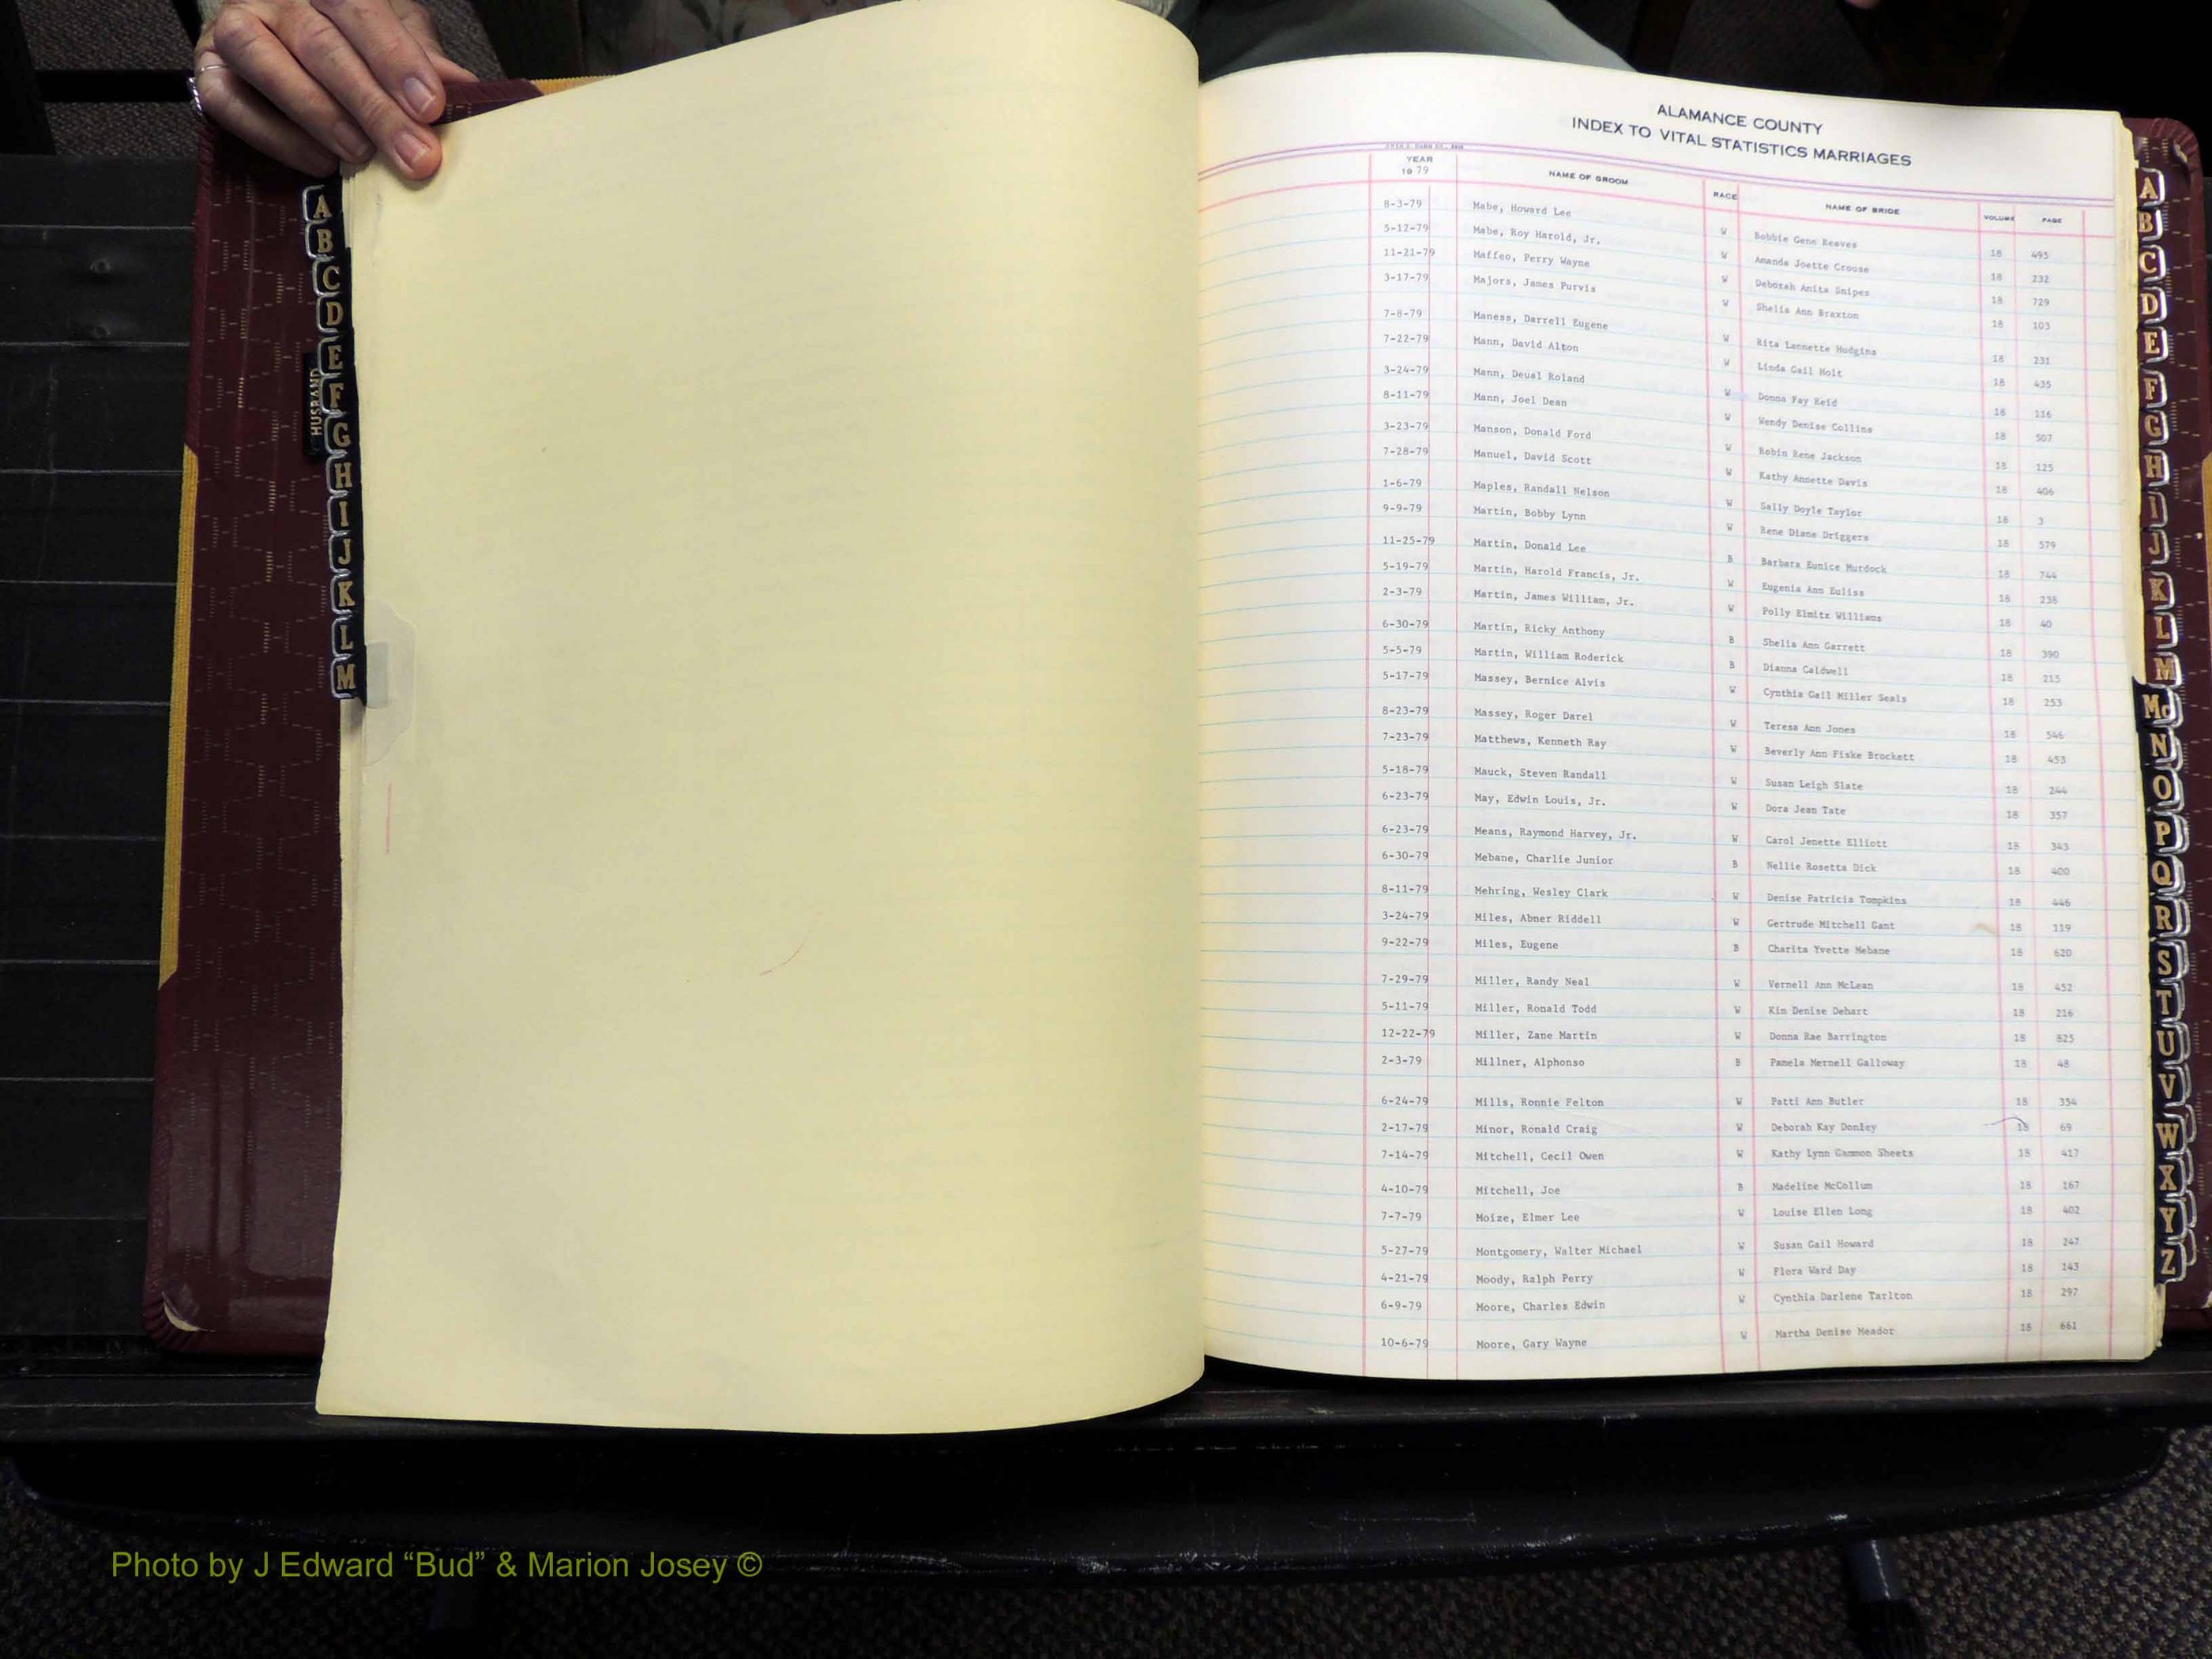 ALAMANCE COUNTY
INDEX TO VITAL STATISTICS MARRIAGES
YEAR
1979 NAME OF GROOM RACE NAME OF BRIDE VOLUME PAGE
8-3-79 Mabe, Howard Lee W Bobbie Gene Reaves 18 495
5-12-79 Mabe, Roy Harold, Jr. W Amanda Joette Crouse 18 232
11-21-79 Maffeo, Perry Wayne W Deborah Anita Snipes 18 729
3-17-79 Majors, James Purvis W Shelia Ann Braxton 18 103
7-8-79 Maness, Darrell Eugene W Rita Lannette Hudgins 18 231
7-22-79 Mann, David Alton W Linda Gail Holt 18 435
3-24-79 Mann, Deual Roland W Donna Fay Reid 18 116
8-11-79 Mann, Joel Dean W Wendy Denise Collins 18 507
3-23-79 Manson, Donald Ford W Robin Rene Jackson 18 125
7-28-79 Manuel, David Scott W Kathy Annette Davis 18 406
1-6-79 Maples, Randall Nelson W Sally Doyle Taylor 18 3
9-9-79 Martin, Bobby Lynn W Rene Diane Driggers 18 579
11-25-79 Martin, Donald Lee B Barbara Eunice Murdock 18 744
5-19-79 Martin, Harold Francis, Jr. W Eugenia Ann Euliss 18 238
2-3-79 Martin, James William, Jr. W Polly Elmitz Williams 18 40
6-30-79 Martin, Ricky Anthony B Shelia Ann Garrett 18 390
5-5-79 Martin, William Roderick B Dianna Caldwell 18 215
5-17-79 Massey, Bernice Alvis W Cynthia Gail Miller Seals 18 253
8-23-79 Massey, Roger Darel W Teresa Ann Jones 18 546
7-23-79 Matthews, Kenneth Ray W Beverly Ann Fiske Brockett 18 453
5-18-79 Mauck, Steven Randall W Susan Leigh Slate 18 244
6-23-79 May, Edwin Louis, Jr. W Dora Jean Tate 18 357
6-23-79 Means, Raymond Harvey, Jr. W Carol Jenette Elliott 18 343
6-30-79 Mebane, Charlie Junior B Nellie Rosetta Dick 18 400
8-11-79 Mehring, Wesley Clark W Denise Patricia Tompkins 18 446
3-24-79 Miles, Abner Riddell W Gertrude Mitchell Gant 18 119
9-22-79 Miles, Eugene B Charita Yvette Mebane 18 620
7-29-79 Miller, Randy Neal W Vernell Ann McLean 18 452
5-11-79 Miller, Ronald Todd W Kim Denise Dehart 18 216
12-22-79 Miller, Zane Martin W Donna Rae Barrington 18 825
2-3-79 Millner, Alphonso B Pamela Mernell Galloway 18 48
6-24-79 Mills, Ronnie Felton W Patti Ann Butler 18 354
2-17-79 Minor, Ronald Craig W Deborah Kay Donley 18 69
7-14-79 Mitchell, Cecil Owen W Kathy Lynn Gammon Sheets 18 417
4-10-79 Mitchell, Joe B Madeline McCollum 18 167
7-7-79 Moize, Elmer Lee W Louise Ellen Long 18 402
5-27-79 Montgomery, Walter Michael W Susan Gail Howard 18 247
4-21-79 Moody, Ralph Perry W Flora Ward Day 18 143
6-9-79 Moore, Charles Edwin W Cynthia Darlene Tarlton 18 297
10-6-79 Moore, Gary Wayne W Martha Denise Meador 18 661
HUSBAND
A
B
C
D
E
F
G
H
I
J
K
L
M
A
B
C
D
E
F
G
H
I
J
K
L
M
Mc
N
O
P
Q
R
S
T
U
V
W
X
Y
Z
Photo by J Edward “Bud” & Marion Josey ©